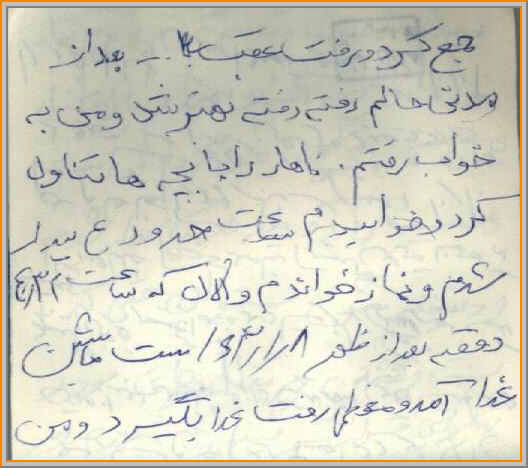 جمع کرد و رفت عقب ... بعد از
مدتی حالم رفته رفته بهتر شد و من به
خواب رفتم. ناهار را با بچه ها تناول
کرد و خوابیدم ساعت حدود ۴ بیدار
شدم و نماز خواندم و الان که ساعت
دقیقه بعد از ظهر است ماشین
غذا آمد و رفت غذا بگیرد و من